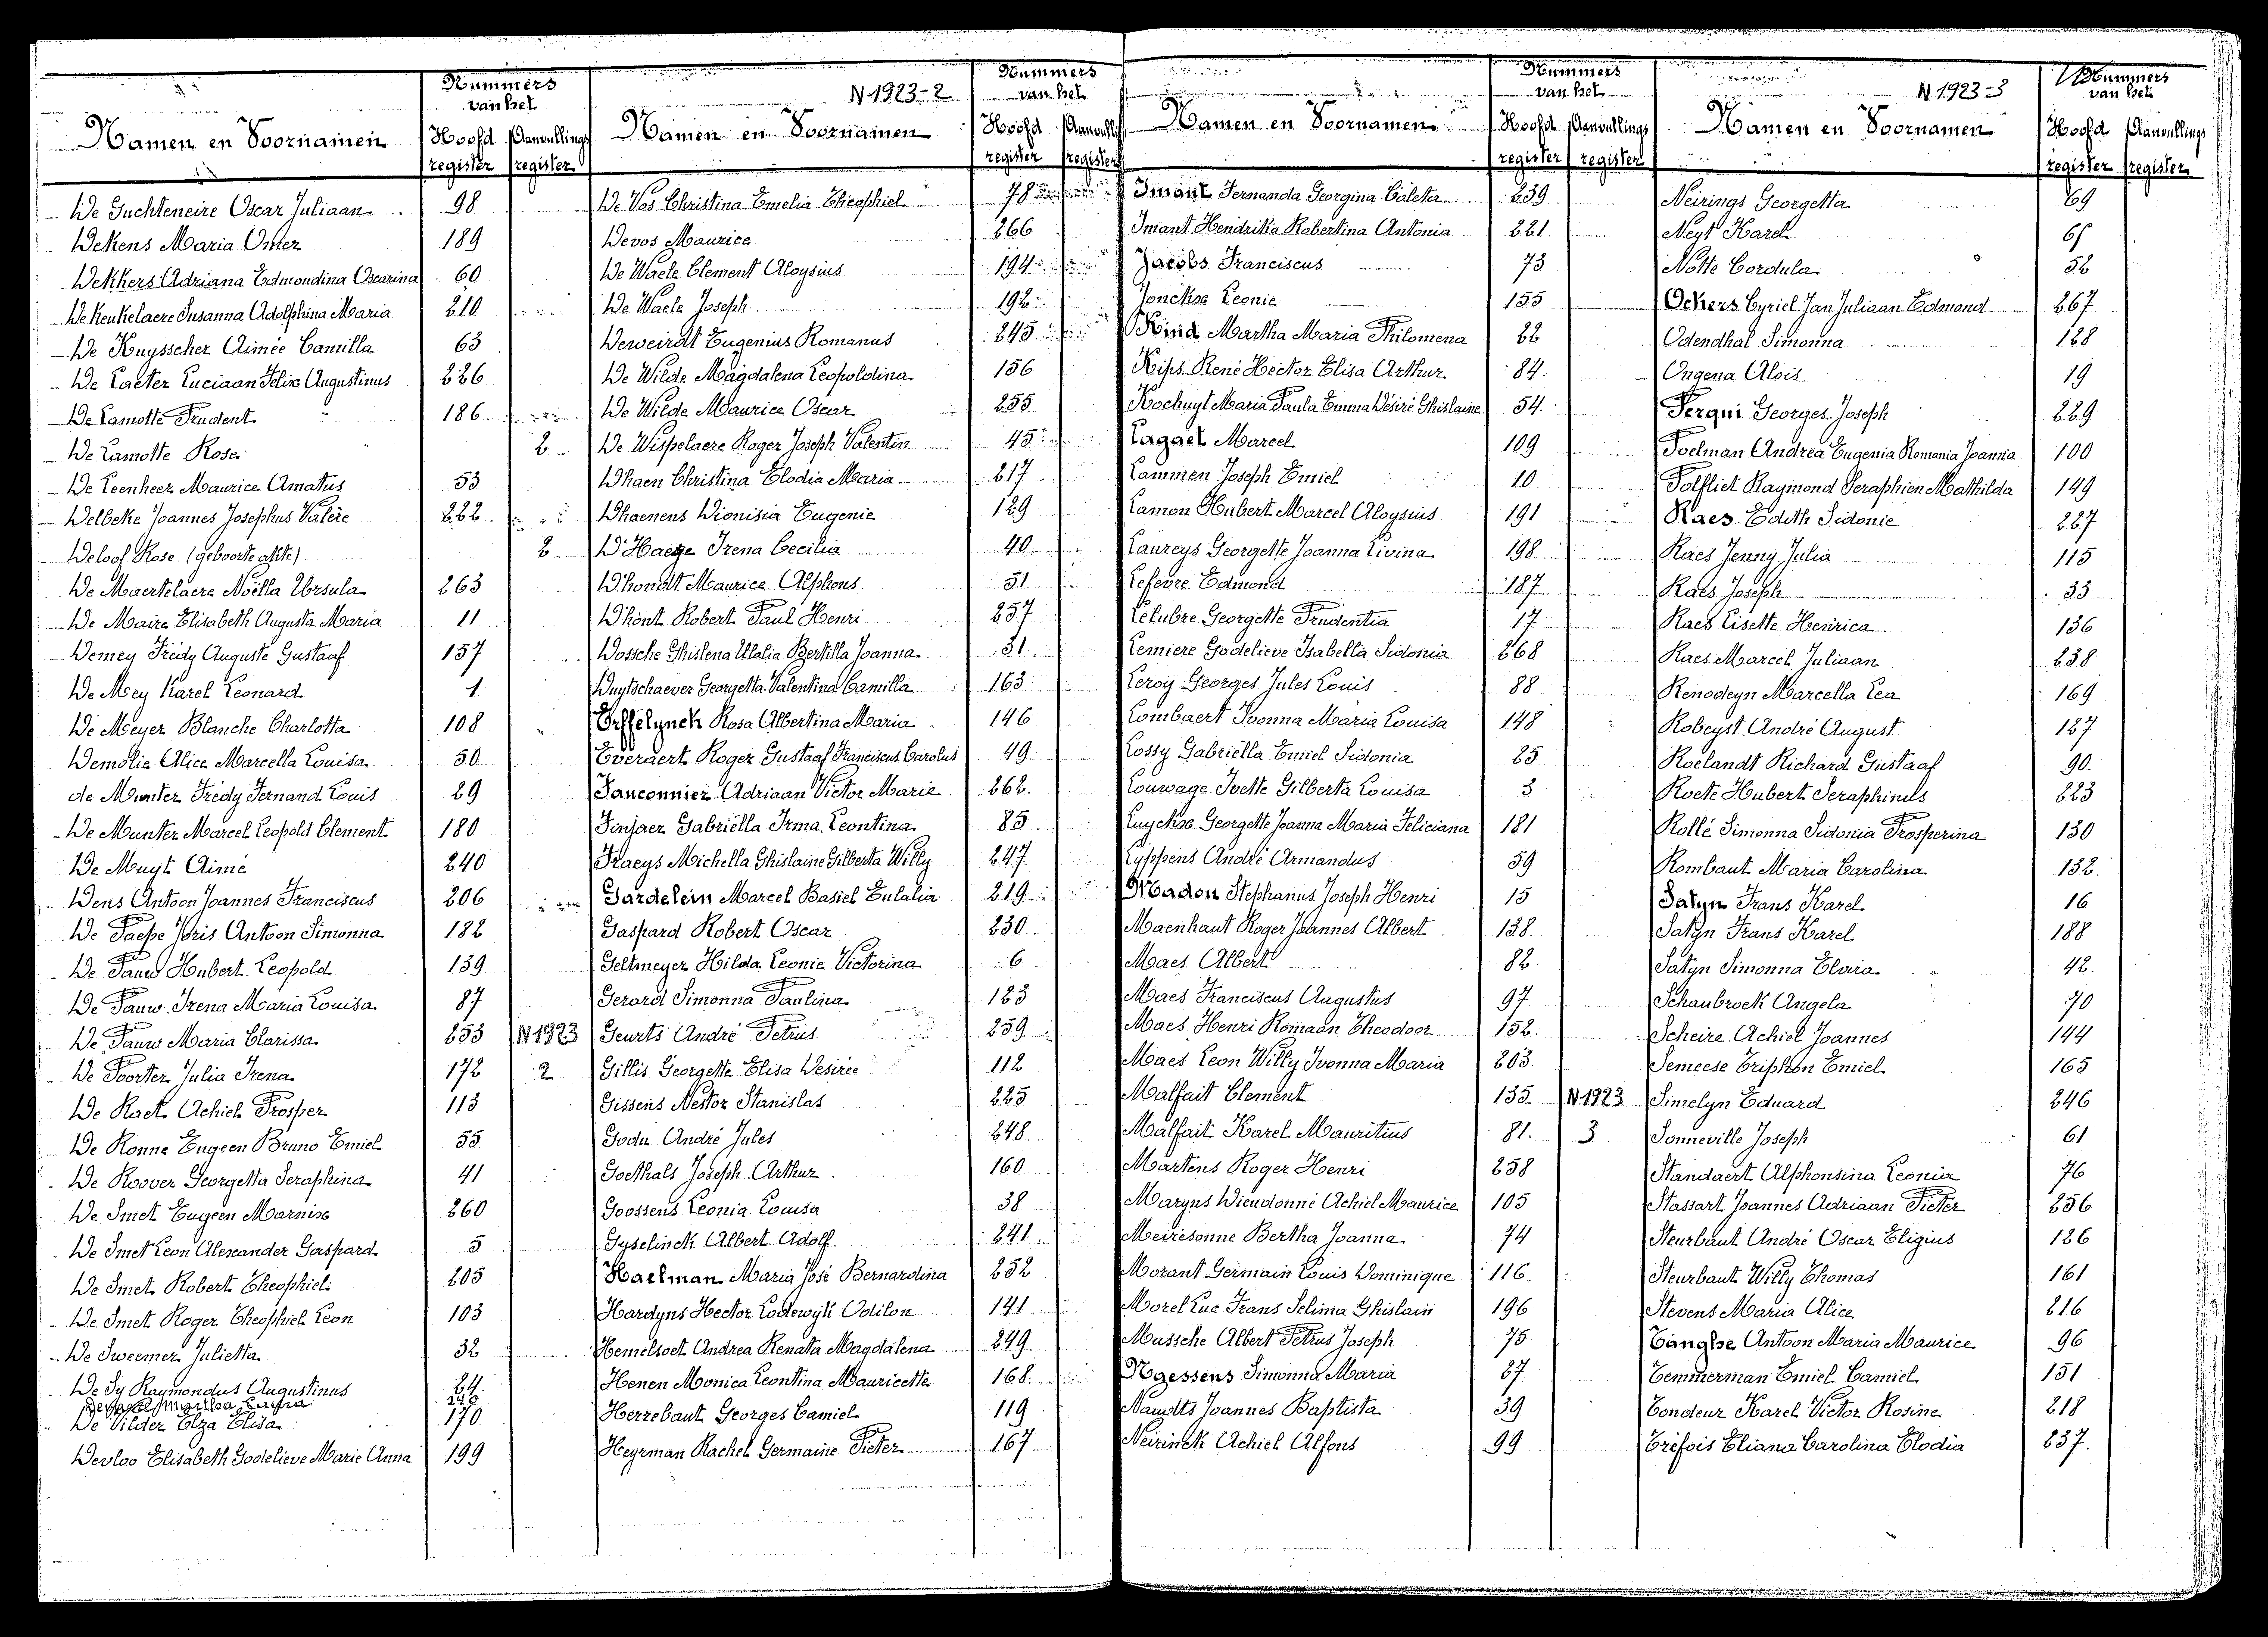 Nummers
van het
Namen en Voornamen Hoofd Aanvullings
register register
De Guchteneire Oscar Juliaan 98
Dekens Maria Omer 189
Dekkers Adriana Edmondina Oscarina 60
De Keukelaere Susanna Adolphina Maria 210
De Kuysscher Aimée Camilla 63
De Laeter Luciaan Felix Augustinus 226
De Lamotte Prudent 186
De Lamotte Rosa 2
De Leenheer Maurice Amatus 53
Delbeke Joannes Josephus Valère 222
Deloof Rose (geboorte akte) 2
De Maertelaere Noëlla Ursula 263
De Maire Elisabeth Augusta Maria 11
Demey Frédy Auguste Gustaaf 157
De Mey Karel Leonard 1
De Meyer Blanche Charlotta 108
Demolie Alice Marcella Louisa 50
de Munter Frédy Fernand Louis 29
De Munter Marcel Leopold Clement 180
De Muyt Aimé 240
Dens Antoon Joannes Franciscus 206
De Paepe Joris Antoon Simonna 182
De Pauw Hubert Leopold 139
De Pauw Irena Maria Louisa 87
De Pauw Maria Clarissa 253 N1923
De Poorter Julia Irena 172 2
De Raet Achiel Prosper 113
De Ronne Eugeen Bruno Emiel 55
De Roover Georgetta Seraphina 41
De Smet Eugeen Marnix 260
De Smet Leon Alexander Gaspard 5
De Smet Robert Theophiel 205
De Smet Roger Theophiel Leon 103
De Sweemer Julietta 32
De Sy Raymondus Augustinus 24
Martha Laura
De Vilder Elza Elisa 170
Devloo Elisabeth Godelieve Marie Anna 199
N 1923-2
Nummers
van het
Namen en Voornamen Hoofd Aanvull
register register
De Vos Christina Emelia Theophiel 78
Devos Maurice 266
De Waele Clement Aloysius 194
De Waele Joseph 192
Deweirdt Eugenius Romanus 245
De Wilde Magdalena Leopoldina 156
De Wilde Maurice Oscar 255
De Wispelaere Roger Joseph Valentin 45
Dhaen Christina Elodia Maria 217
Dhaenens Dionisia Eugenie 129
D'Haeze Irena Cecilia 40
D'hondt Maurice Alphons 51
D'hont Robert Paul Henri 257
Dossche Ghislena Ulalia Bertilla Joanna 31
Duytschaever Georgetta Valentina Camilla 163
Effelynck Rosa Albertina Maria 146
Everaert Roger Gustaaf Franciscus Carolus 49
Fauconnier Adriaan Victor Marie 262
Finjaer Gabriëlla Irma Leontina 85
Fraeys Michella Ghislaine Gilberta Willy 247
Gardelein Marcel Basiel Eulalia 219
Gaspard Robert Oscar 230
Geltmeyer Hilda Leonie Victorina 6
Gerard Simonna Paulina 123
Geurts André Petrus 259
Gillis Georgette Elisa Desirée 112
Gissens Nestor Stanislas 225
Godu André Jules 248
Goethals Joseph Arthur 160
Goossens Leonia Louisa 38
Gyselinck Albert Adolf 241
Haelman Maria José Bernardina 252
Hardyns Hector Lodewyk Odilon 141
Hemelsoet Andrea Renata Magdalena 249
Henen Monica Leontina Mauricette 168
Herrebaut Georges Camiel 119
Heyrman Rachel Germaine Pieter 167
Nummers
van het
Namen en Voornamen Hoofd Aanvullings
register register
Imant Fernanda Georgina Coleta 239
Imant Hendrika Robertina Antonia 221
Jacobs Franciscus 73
Jonckx Leonie 155
Kind Martha Maria Philomena 22
Kips René Hector Elisa Arthur 84
Kochuyt Maria Paula Emma Désiré Ghislaine 54
Lagaet Marcel 109
Lammen Joseph Emiel 10
Lamon Hubert Marcel Aloysius 191
Laureys Georgette Joanna Livina 198
Lefevre Edmond 187
Lelubre Georgette Prudentia 17
Lemiere Godelieve Isabella Sidonia 268
Leroy Georges Jules Louis 88
Lombaert Ivonna Maria Louisa 148
Lossy Gabriëlla Emiel Sidonia 25
Louwage Ivette Gilberta Louisa 3
Luyckx Georgette Joanna Maria Feliciana 181
Lyppens André Armandus 59
Madou Stephanus Joseph Henri 15
Maenhaut Roger Joannes Albert 138
Maes Albert 82
Maes Franciscus Augustus 97
Maes Henri Romaan Theodoor 152
Maes Leon Willy Ivonna Maria 203
Malfait Clement 135 N1923
Malfait Karel Mauritius 81 3
Martens Roger Henri 258
Maryns Dieudonné Achiel Maurice 105
Meiresonne Bertha Joanna 74
Morant Germain Louis Dominique 116
Morel Luc Frans Selima Ghislain 196
Mussche Albert Petrus Joseph 75
Naessens Simonna Maria 27
Naudts Joannes Baptista 39
Neirinck Achiel Alfons 99
N 1923-3
Nummers
van het
Namen en Voornamen Hoofd Aanvullings
register register
Neirings Georgetta 69
Neyt Karel
Notte Cordula 52
Ockers Cyriel Jan Juliaan Edmond 267
Odendhal Simonna 128
Ongena Alois 19
Perqui Georges Joseph 229
Poelman Andrea Eugenia Romania Joanna 100
Polfliet Raymond Seraphien Mathilda 149
Raes Edith Sidonie 227
Raes Jenny Julia 115
Raes Joseph 33
Raes Lisette Henrica 136
Raes Marcel Juliaan 238
Renodeyn Marcella Lea 169
Robeyst André August 127
Roelandt Richard Gustaaf 90
Roete Hubert Seraphinus 223
Rollé Simonna Sidonia Prosperina 130
Rombaut Maria Carolina 132
Satyn Frans Karel 16
Satyn Frans Karel 188
Satyn Simonna Elvira 42
Schaubroek Angela 70
Scheire Achiel Joannes 144
Semeese Triphon Emiel 165
Simelyn Eduard 246
Sonneville Joseph 61
Standaert Alphonsina Leonia 76
Stassart Joannes Adriaan Pieter 256
Steurbaut André Oscar Eligius 126
Steurbaut Willy Thomas 161
Stevens Maria Alice 216
Tanghe Antoon Maria Maurice 96
Temmerman Emiel Camiel 151
Tondeur Karel Victor Rosine 218
Tréfois Eliana Carolina Elodia 237